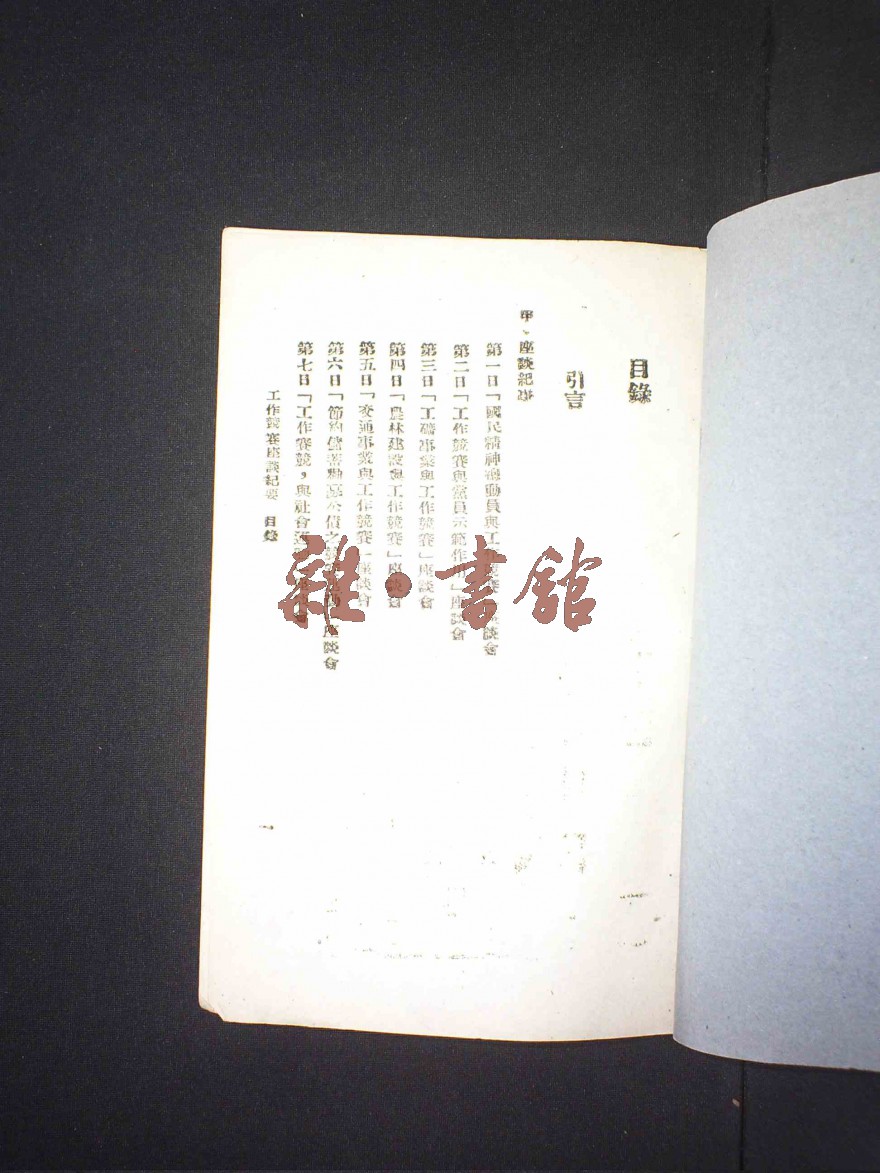 目錄
引言
甲、座談紀事
第一日「國民精神總動員與工作競賽」座談會
第二日「工作競賽與黨員示範作用」座談會
第三日「工礦事業與工作競賽」座談會
第四日「農林建設與工作競賽」座談會
第五日「交通事業與工作競賽」座談會
第六日「節約儲蓄勸募公債之 座談會
第七日「工作賽競，與社會
工作競賽座談紀要 目錄
一
雜·書館